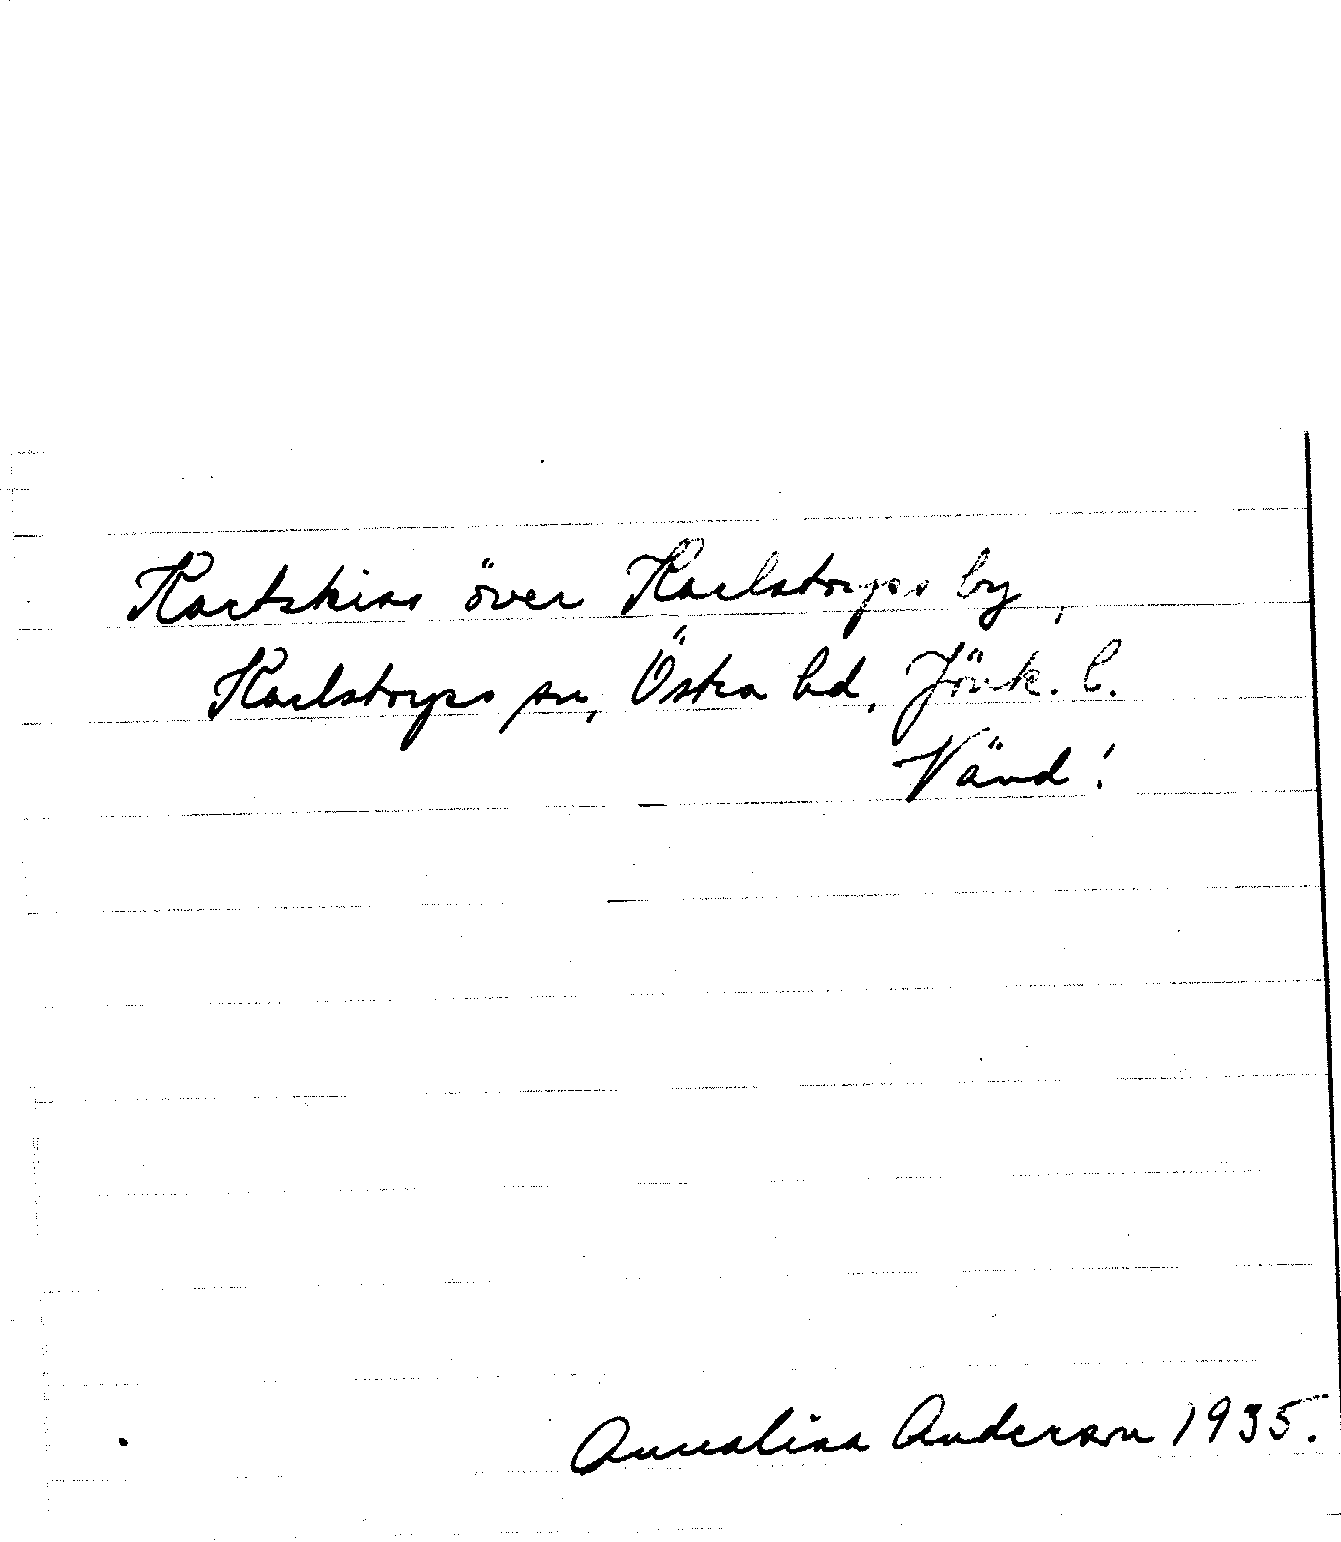 Kartskiss över Karlstorps by,
Karlstorps sn, Östra hd, Jönk. l.
Vänd!
Annalisa Anderson 1935.